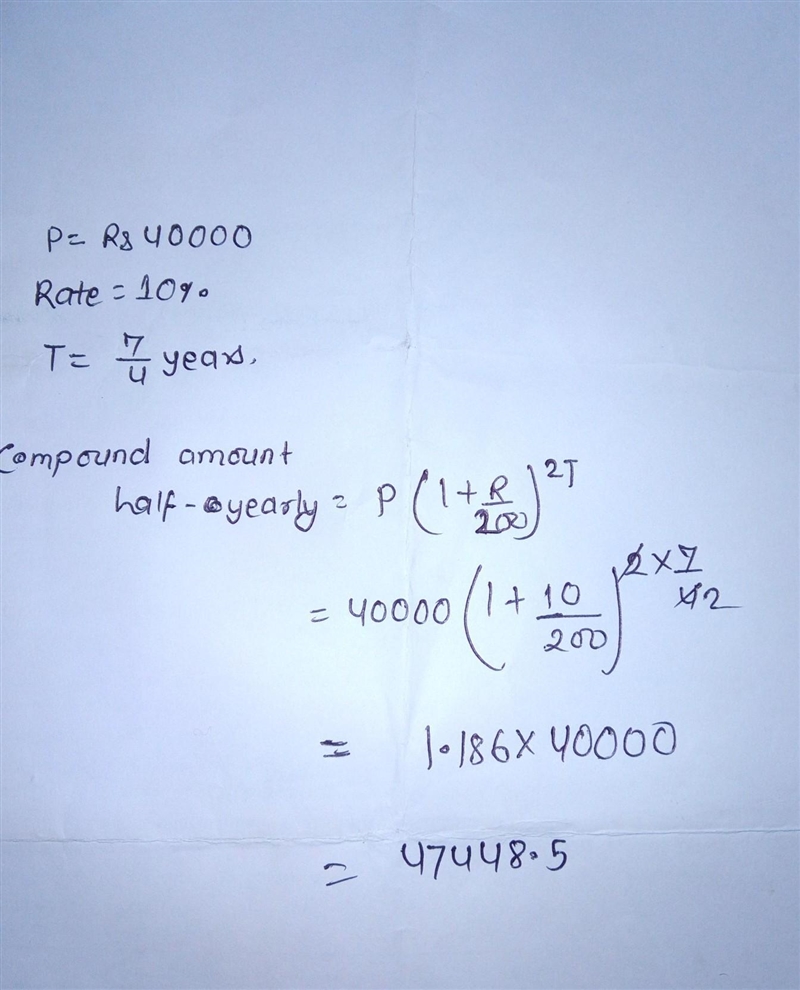 P= Rs 40000
Rate = 10%
T= 7/4 years.
Compound amount
half-yearly = P (1+R/200)^2T
= 40000 (1+10/200)^2×7/42
= 1.186×40000
= 47448.5